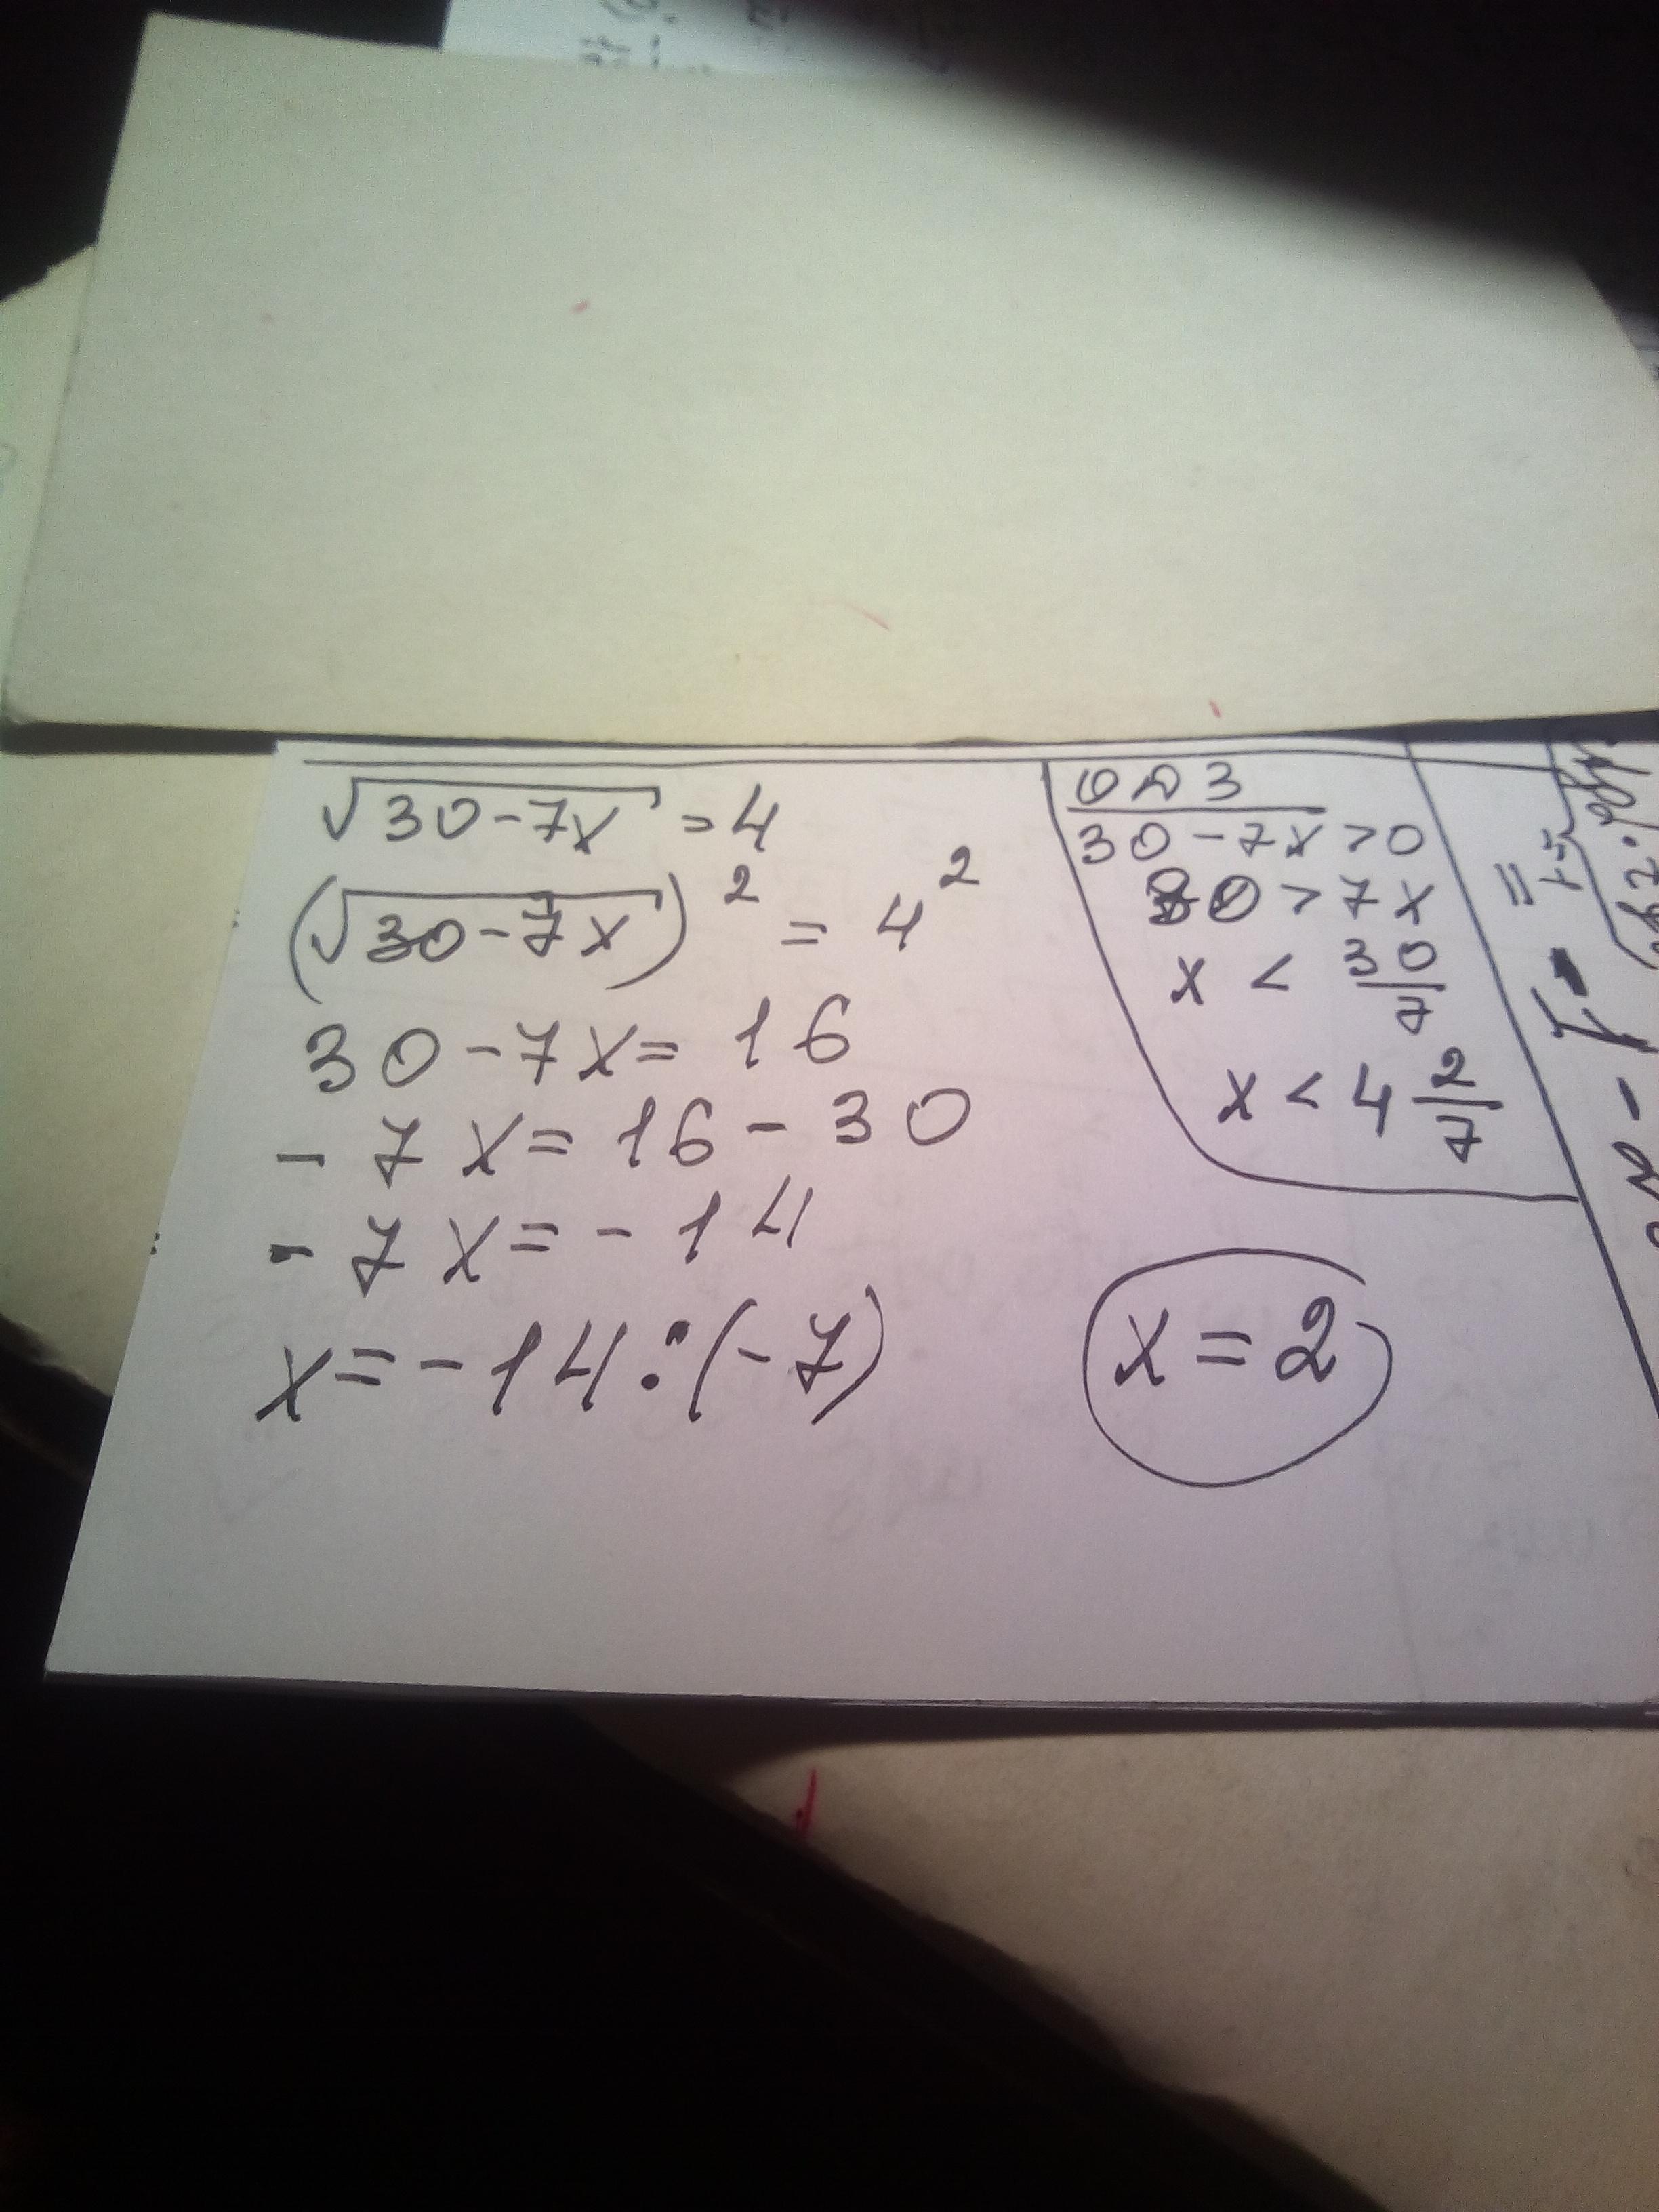 √30-7x = 4
(√30-7x)² = 4²
30-7x= 16
- 7x= 16 - 30
- 7x= - 14
x= - 14 : (-7)
x = 2
ОДЗ
30-7x > 0
30 > 7x
x < 30/7
x < 4 2/7